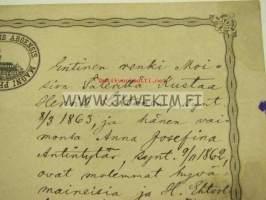 Entinen renki Moi-
sion Valentin Kustaa
synt.
8/3 1863, ja hänen vai-
monsa Anna Josefina
Antintytär, synt. 9/11 1862,
ovat molemmat hyvä-
maineisia ja H. Ehtool-
WWW.JUVEKIM.FI